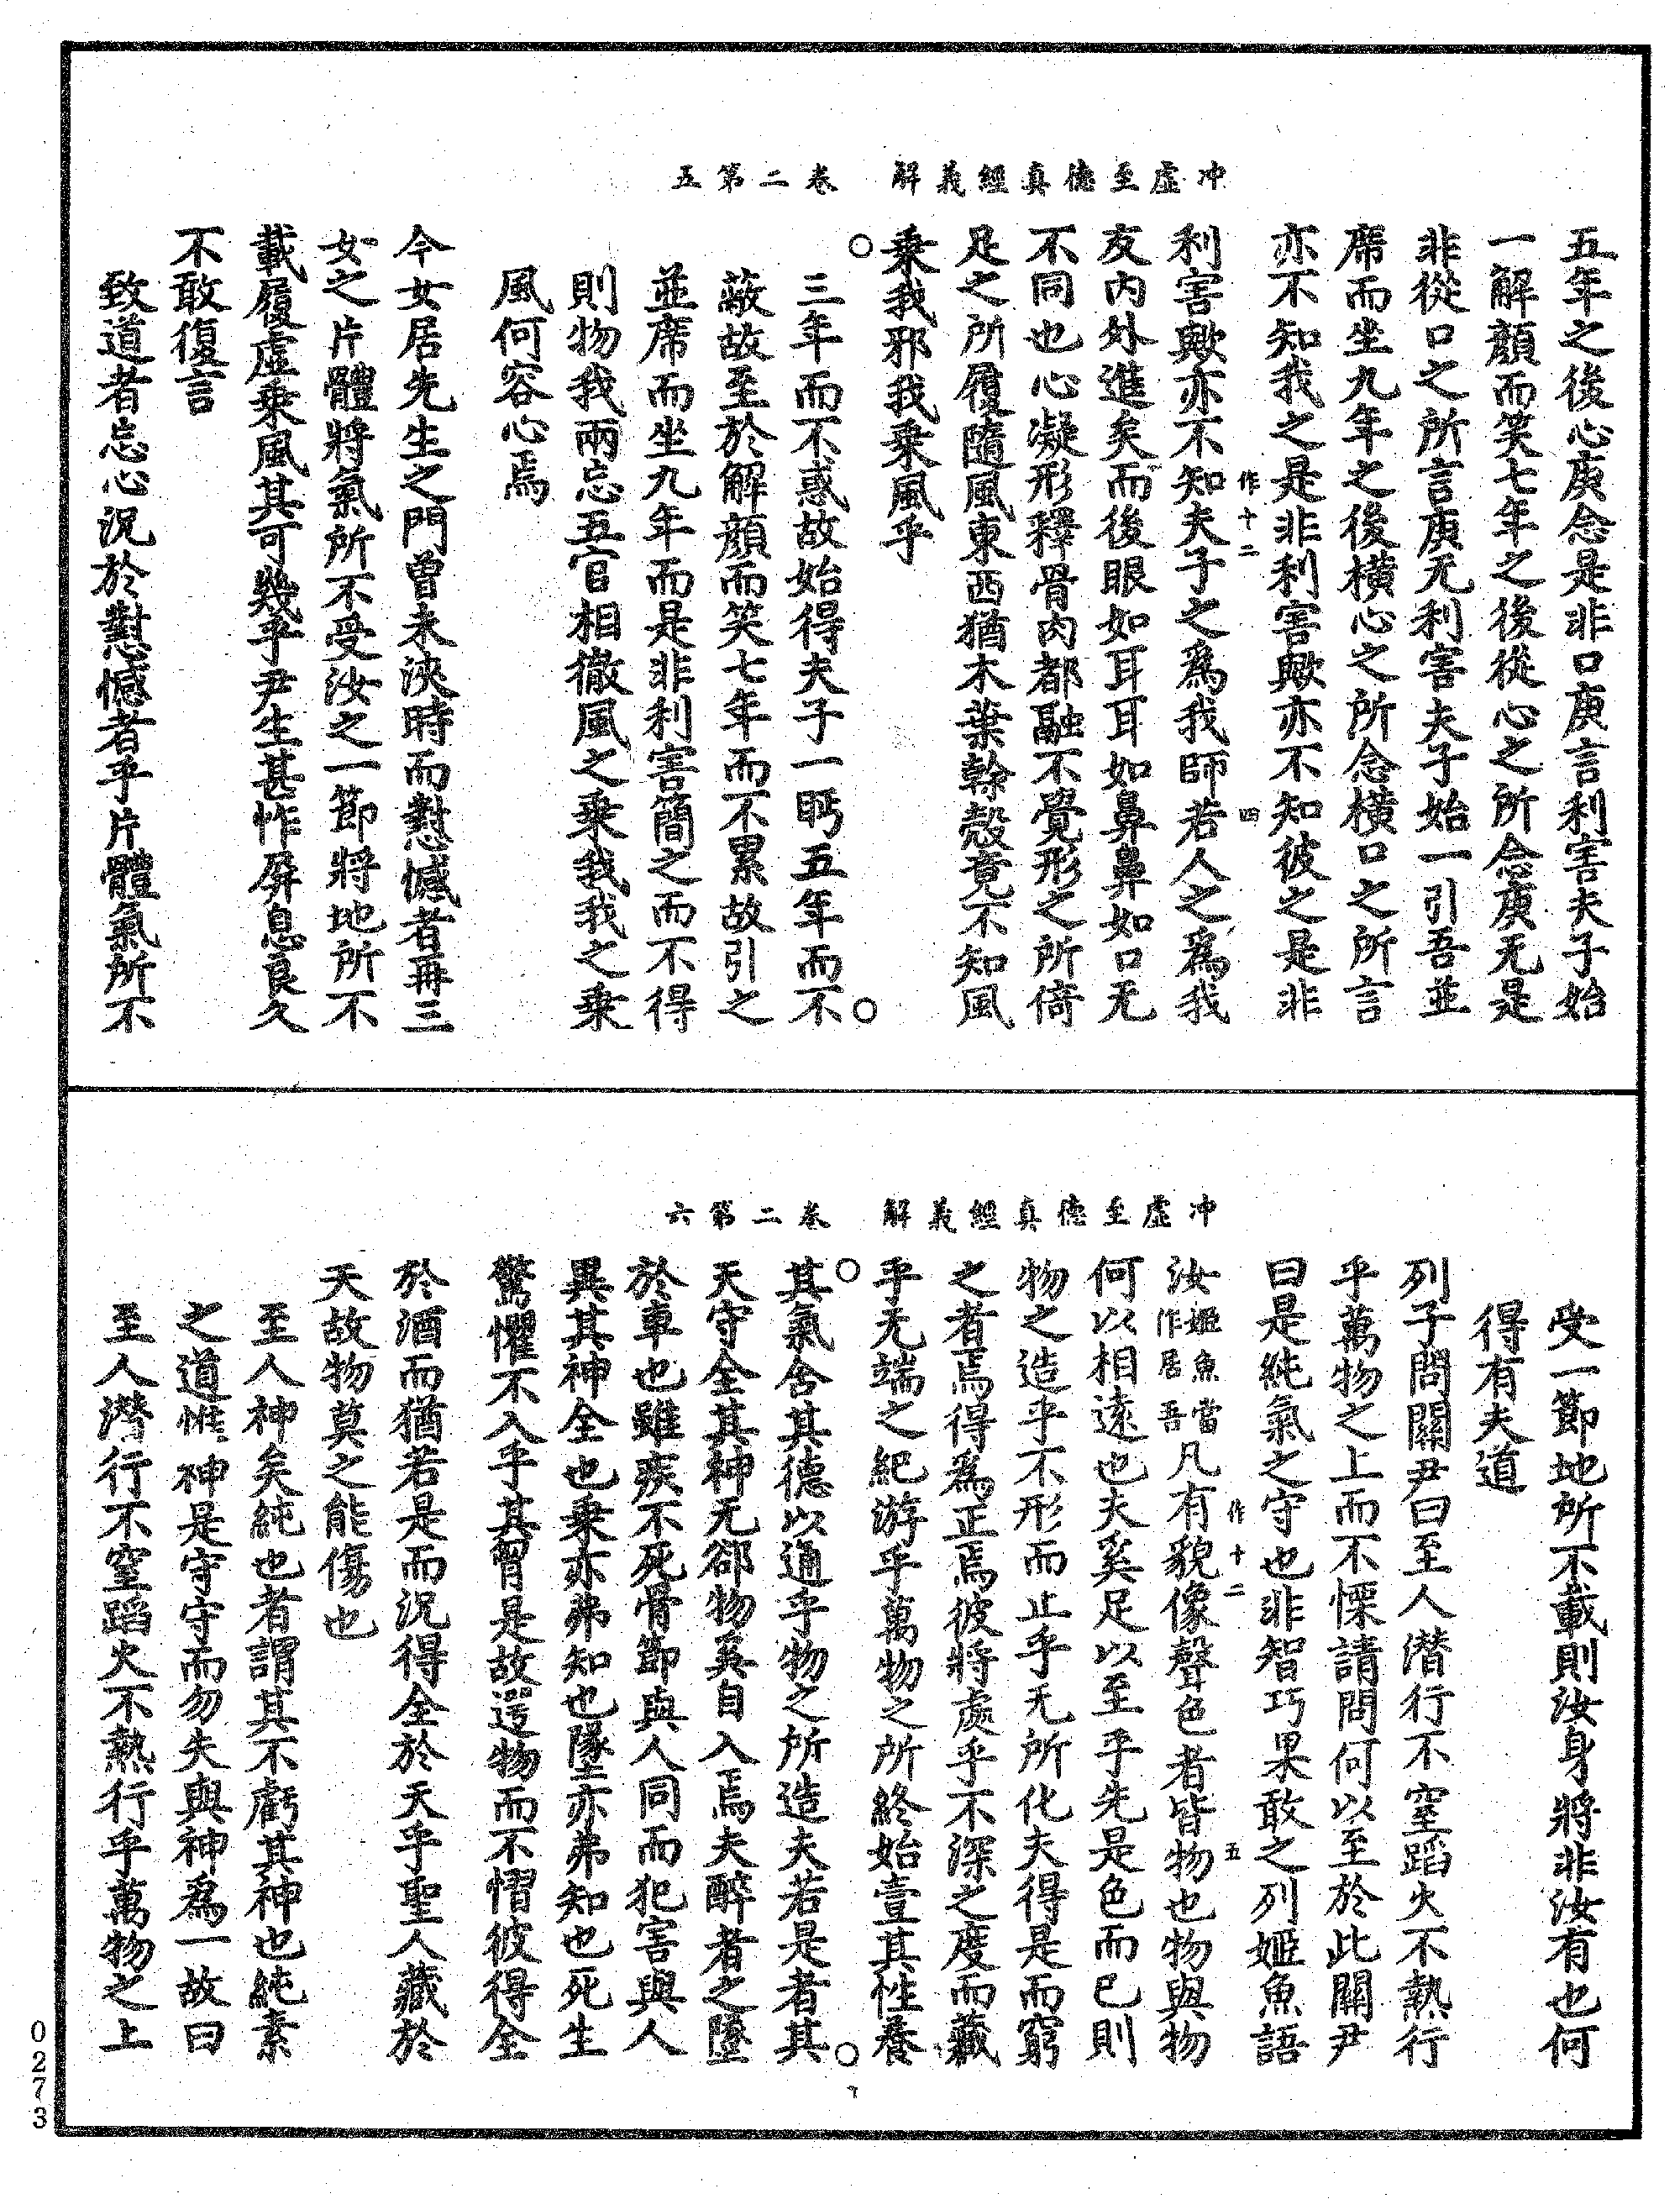 冲虛至德真經義解　卷二第五
五年之後心庚念是非口庚言利害夫子始
一解顏而笑七年之後從心之所念庚无是
非從口之所言庚无利害夫子始一引吾並
席而坐九年之後橫心之所念橫口之所言
亦不知我之是非利害歟亦不知彼之是非
作十二　四
利害歟亦不知夫子之爲我師若人之爲我
友內外進矣而後眼如耳耳如鼻鼻如口无
不同也心凝形釋骨肉都融不覺形之所倚
足之所履隨風東西猶木葉幹殼竟不知風
乘我邪我乘風乎
三年而不惑故始得夫子一眄五年而不
蔽故至於解顏而笑七年而不累故引之
並席而坐九年而是非利害簡之而不得
則物我兩忘五官相徹風之乘我我之乘
風何容心焉
今女居先生之門曾未浹時而懟憾者再三
女之片體將氣所不受汝之一節將地所不
載履虛乘風其可幾乎尹生甚怍屏息良久
不敢復言
致道者忘心況於懟憾者乎片體氣所不
冲虛至德真經義解　卷二第六
受一節地所不載則汝身將非汝有也何
得有夫道
列子問關尹曰至人潛行不窒蹈火不熱行
乎萬物之上而不慄請問何以至於此關尹
曰是純氣之守也非智巧果敢之列姬魚語
作十二　五
汝姬魚當作居吾凡有貌像聲色者皆物也物與物
何以相遠也夫奚足以至乎先是色而已則
物之造乎不形而止乎无所化夫得是而窮
之者焉得爲正焉彼將處乎不深之度而藏
乎无端之紀游乎萬物之所終始壹其性養
其氣含其德以通乎物之所造夫若是者其
天守全其神无郤物奚自入焉夫醉者之墜
於車也雖疾不死骨節與人同而犯害與人
異其神全也乘亦弗知也墜亦弗知也死生
驚懼不入乎其胷是故遻物而不慴彼得全
於酒而猶若是而況得全於天乎聖人藏於
天故物莫之能傷也
至人神矣純也者謂其不虧其神也純素
之道惟神是守守而勿失與神爲一故曰
至人潛行不窒蹈火不熱行乎萬物之上
0273